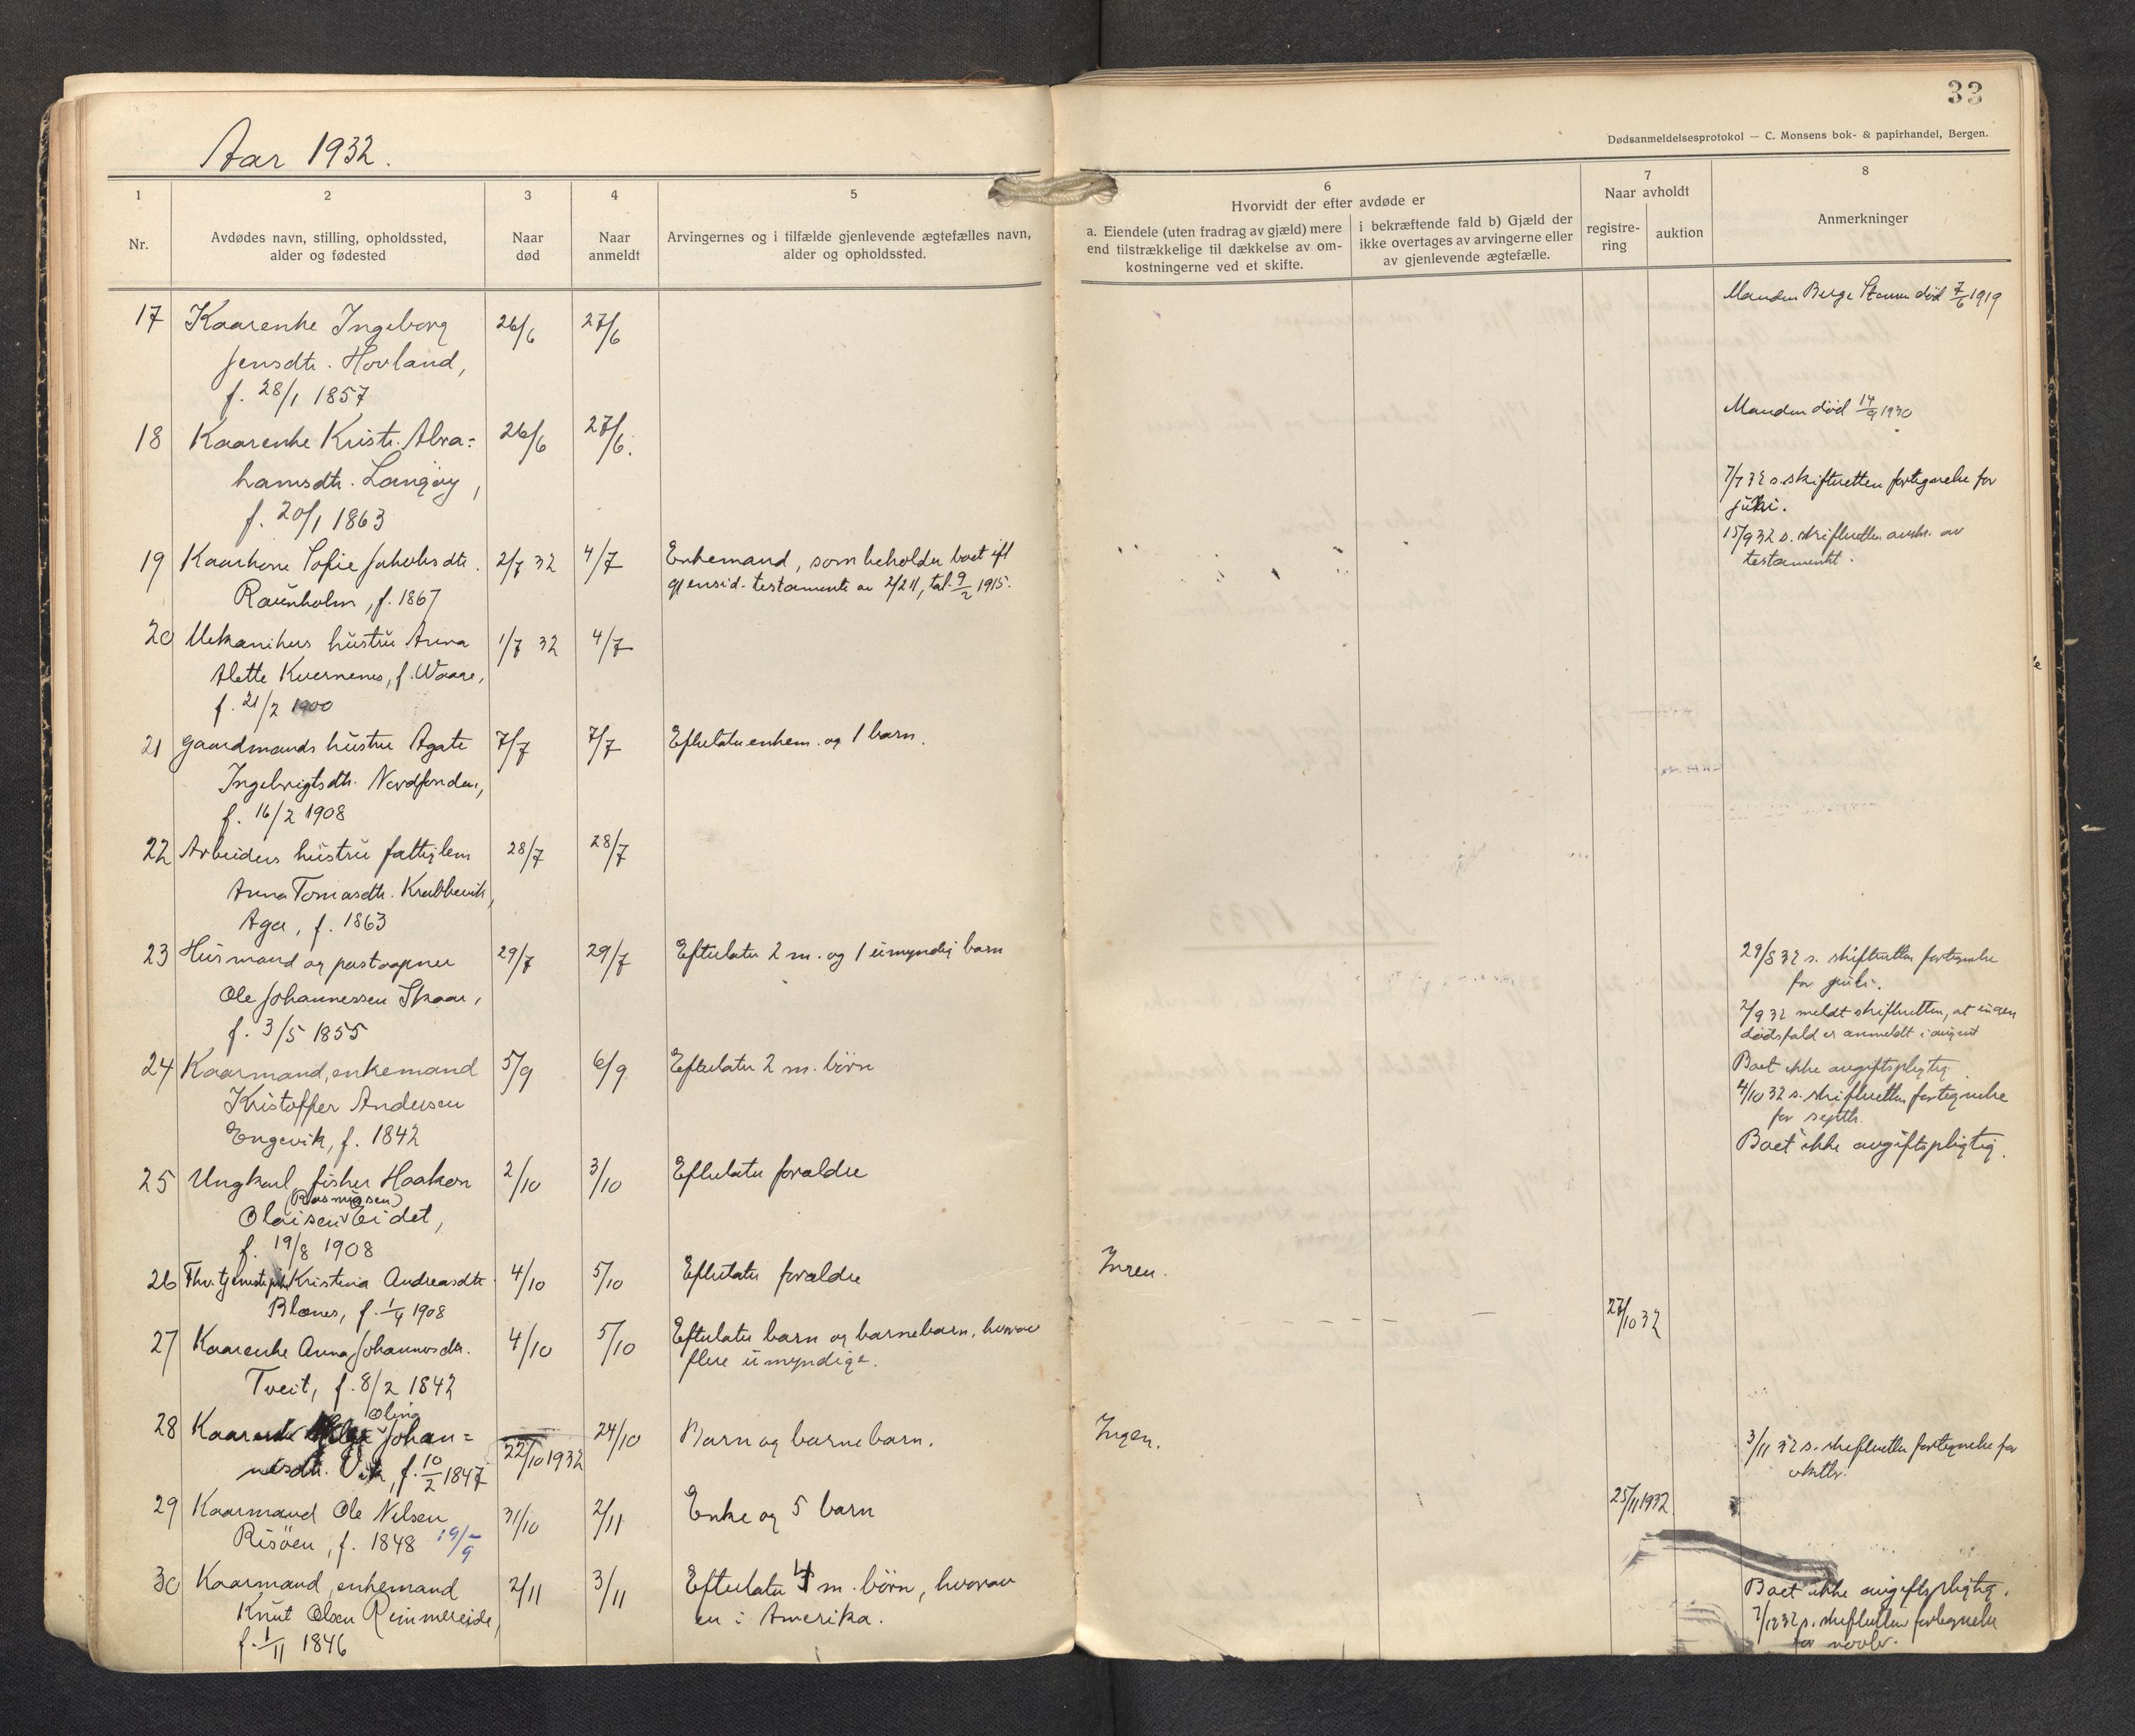 33
Dødsanmeldelsesprotokol — C. Monsens bok- & papirhandel, Bergen.
Aar 1932.
1
2
3
4
5
6
7
8
Nr.
Avdødes navn, stilling, opholdssted,
alder og fødested
Naar
død
Naar
anmeldt
Arvingernes og i tilfælde gjenlevende ægtefælles navn,
alder og opholdssted.
Hvorvidt der efter avdøde er
a. Eiendele (uten fradrag av gjæld) mere
end tilstrækkelige til dækkelse av om-
kostningerne ved et skifte.
i bekræftende fald b) Gjæld der
ikke overtages av arvingerne eller
av gjenlevende ægtefælle.
Naar avholdt
registre-
ring
auktion
Anmerkninger
17 Kaarenke Ingeborg 26/6 27/6 Manden Berge død 7/6 1919
Jensdtr. Hovland,
f. 28/1 1857
Manden død 14/9 1930
18 Kaarenke Kristi Abra= 26/6 27/6.
hamsdtr. Langøy,
f. 20/1 1863
7/7 32 s. skifteretten fortegnelse for
juni.
19 Kaarkone Sofie Jakobsdtr. 2/7 32 4/7 Enkemand, som beholder boet ifl
Raunholm, f. 1867 gjensid. testamente av 2/2 11, tal. 9/2 1915.
15/9 32 s. skifteretten avskr. av
testamentet.
20 Mekanikers hustru Anna 1/7 32 4/7
Alette Kvernenes, f. Waage,
f. 21/2 1900
21 Gaardmands hustru Agate 7/7 7/7 Efterlater enkem. og 1 barn.
Ingebrigtsdtr. Nordfonden,
f. 16/2 1908
22 Arbeiders hustru fattiglem 28/7 28/7
Anna Tomasdtr. Krabbevik,
Aga, f. 1863
23 Husmand og postaapner 29/7 29/7 Efterlater 2 m. og 1 umyndig barn
Ole Johannessen Skaar,
f. 3/5 1855
29/8 32 s. skifteretten fortegnelse
for juli.
2/9 32 meldt skifteretten, at ingen
dødsfald er anmeldt i august
24 Kaarmand, enkemand 5/9 6/9 Efterlater 2 m. børn Boet ikke avgiftspligtig.
Kristoffer Andersen
Engevik, f. 1842
4/10 32 s. skifteretten fortegnelse
for septbr.
Boet ikke avgiftspligtig.
25 Ungkarl, fisker Haakon 2/10 3/10 Efterlater forældre
(Rasmussen)
Olaisen Eidet,
f. 19/8 1908
26 Fhv. tjenestepike Kristina Andreasdtr. 4/10 5/10 Efterlater forældre Ingen.
Blænes, f. 1/4 1908
27 Kaarenke Anna Johannesdtr. 4/10 5/10 Efterlater barn og barnebarn, hvorav 27/10 32
Tveit, f. 8/2 1842 flere umyndige.
28 Kaarenke Olina Johan= 22/10 1932 24/10 Barn og barnebarn. Ingen.
nesdtr. Vik, f. 10/2 1847
3/11 32 s. skifteretten fortegnelse for
oktbr.
29 Kaarmand Ole Nilsen 31/10 2/11 Enke og 5 barn 25/11 1932
Risöen, f. 1848 19/9
30 Kaarmand, enkemand 2/11 3/11 Efterlater 4 m. börn, hvorav Boet ikke avgiftspligtig.
Knut Olsen Remmereide, en i Amerika.
f. 1/11 1846
7/12 32 s. skifteretten fortegnelse
for novbr.